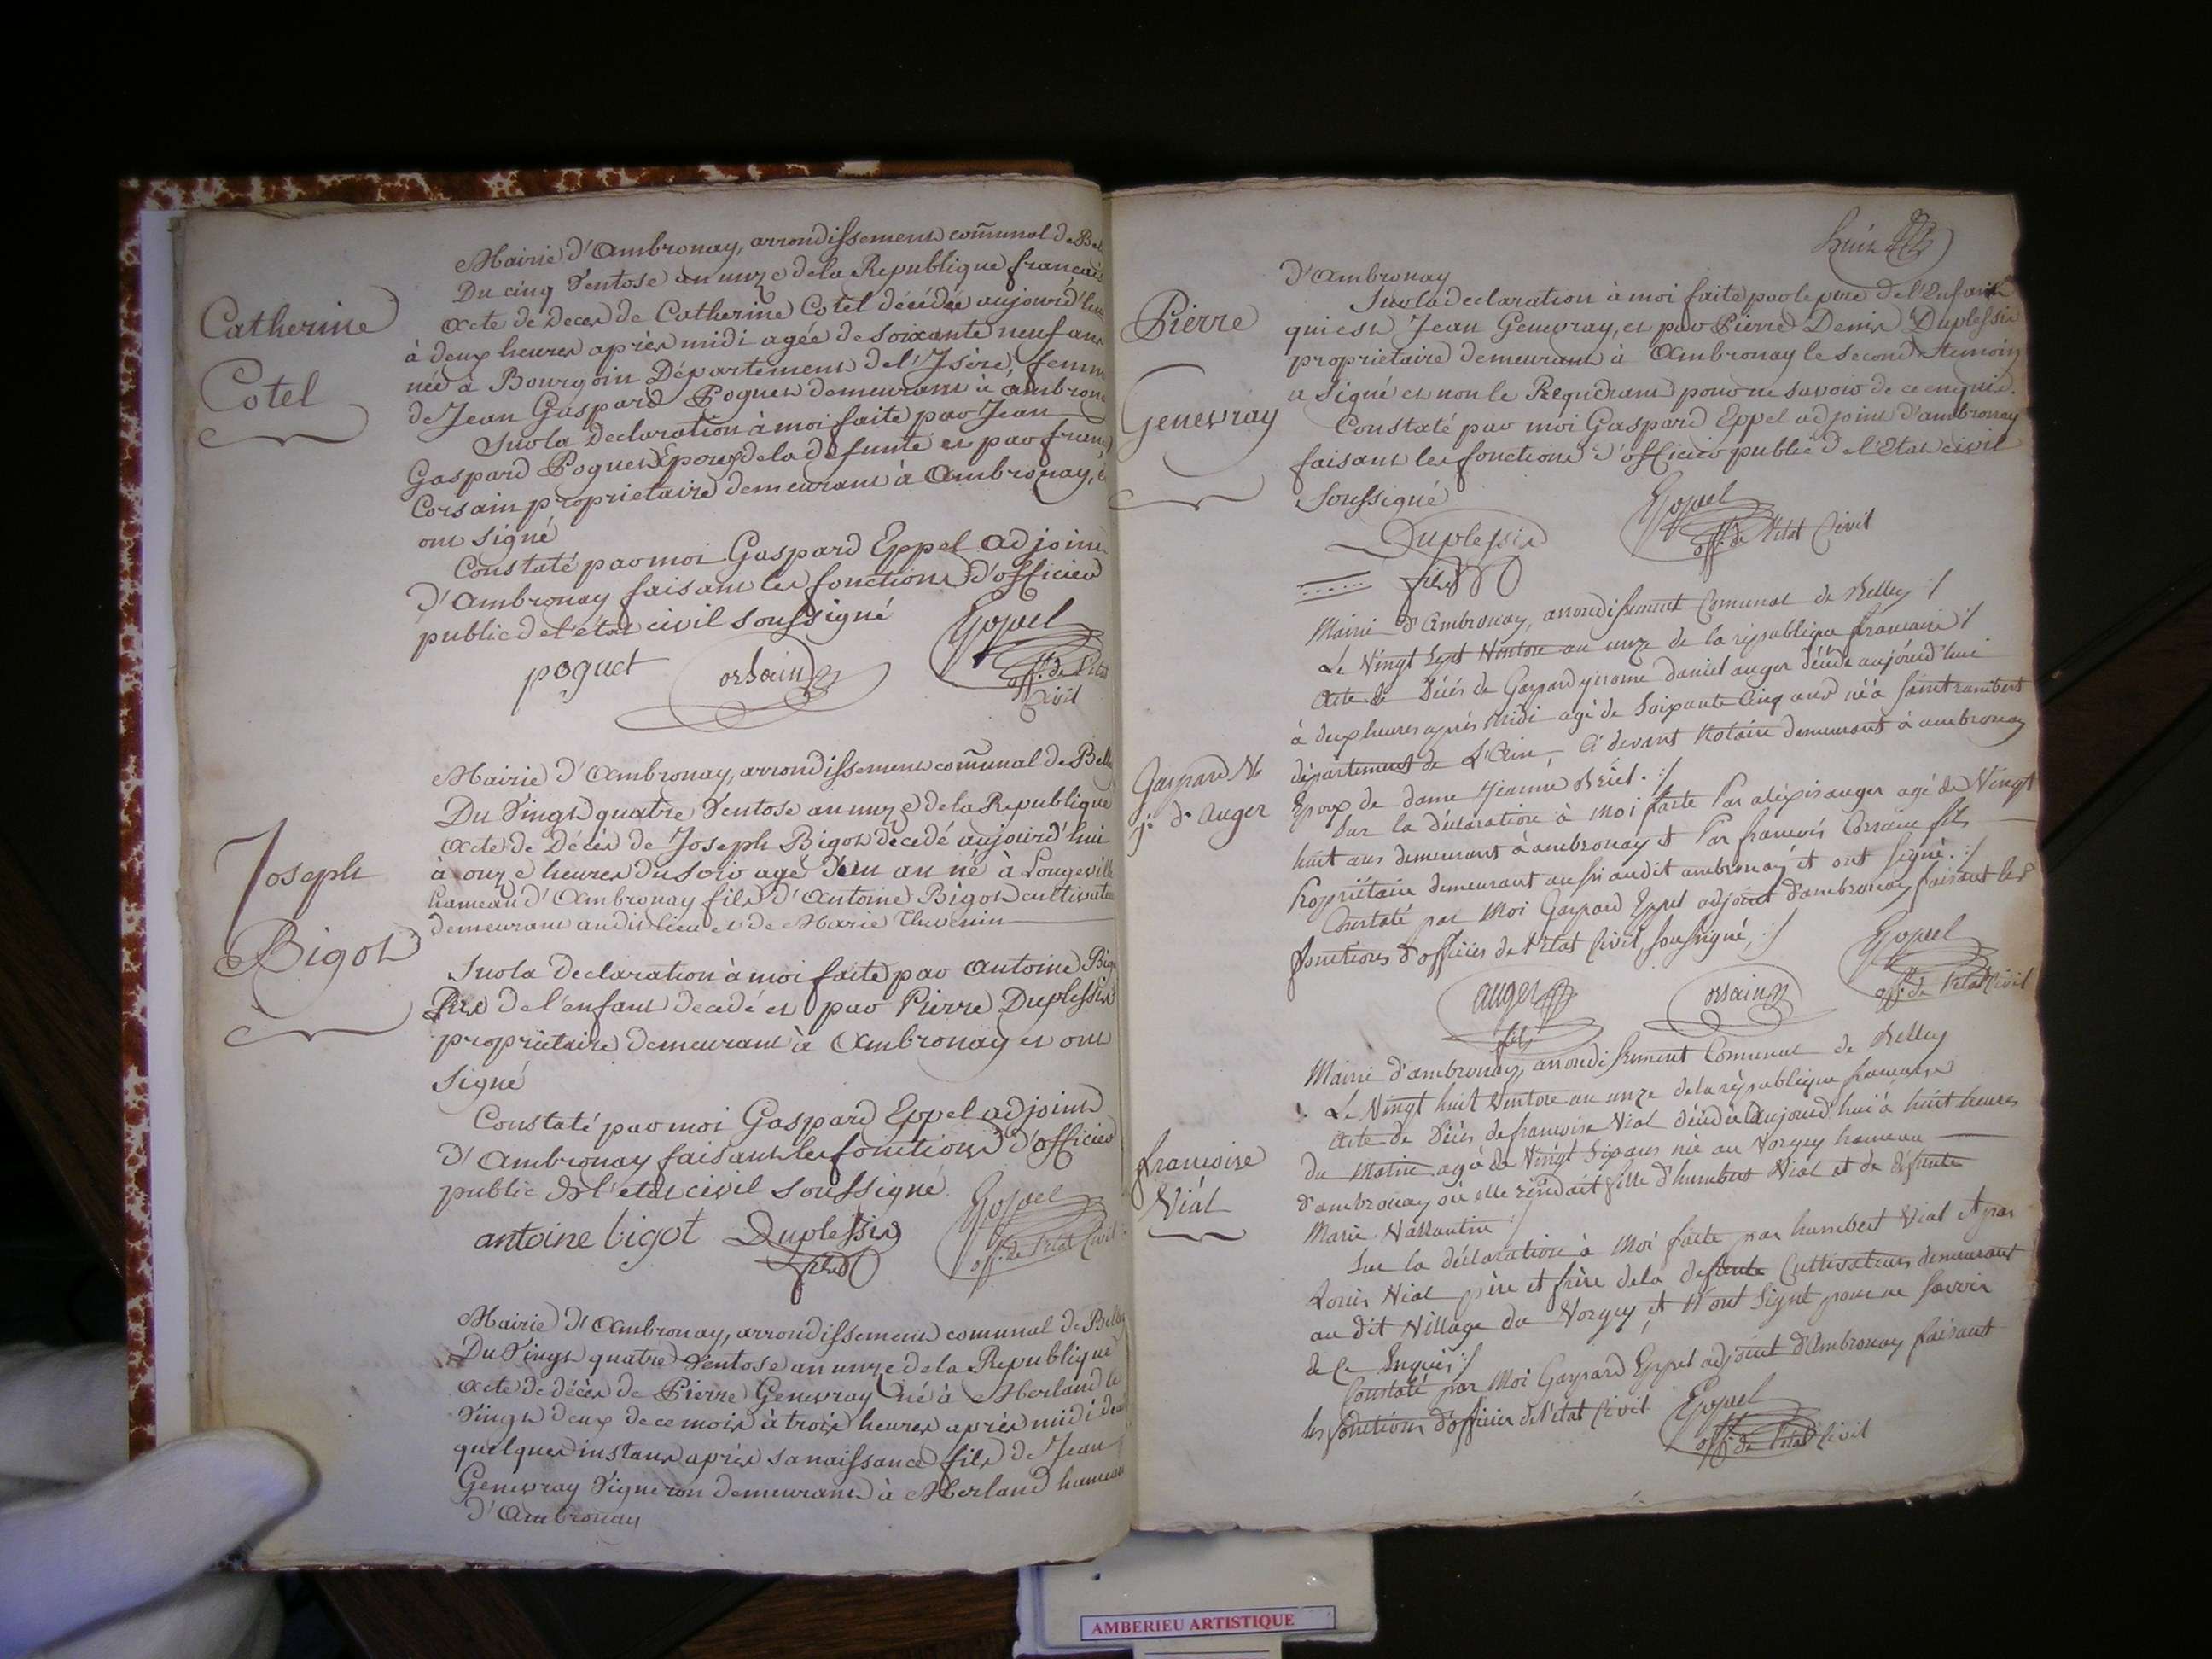 Catherine
Cotel
Mairie d'Ambronay, arrondissement com̃unal de Bel
Du cinq Ventose an unze de la Republique francais
acte de Deces de Catherine Cotel décédée aujourd'hui
à deux heures après midi agée de Soixante neuf ans
née à Bourgoin Département de l'Isère, femme
de Jean Gaspard Poguet demeurant à ambron
Sur la Declaration à moi faite par Jean
Gaspard Poguet Epoux de la défunte et par franç
Corsain proprietaire demeurant à Ambronay, 
ont signé
Constaté par moi Gaspard Eppel adjoint
d'Ambronay faisant les fonctions d'officier
public de l'état civil soussigné
poguet orsain Eppel
off. de l'état
Civil
Joseph
Bigot
Mairie d'Ambronay, arrondissement com̃unal de Belle
Du Vingt quatre Ventose an unze de la Republique
acte de Décès de Joseph Bigot décedé aujourd'hui
à onze heures du soir agé d'un an né à Longeville
hameau d'Ambronay fils d'Antoine Bigot cultivateu
demeurant audit lieu et de Marie Thevenin
Sur la declaration à moi faite par Antoine Bigo
Père de l'enfant decedé et par Pierre Duplessis
proprietaire demeurant à Ambronay et ont
signé
Constaté par moi Gaspard Eppel adjoint
d'Ambronay faisant les fonctions d'officier
public de l'etat civil soussigné
antoine bigot Duplessis Eppel
fils off. de l'état Civil
Mairie d'Ambronay, arrondissement communal de Belley
Du Vingt quatre Ventose an unze de la Republique
acte de décès de Pierre Genevray né à Merland le
Vingt deux de ce mois à trois heures après midi
quelques instans après sa naissance fils de Jean
Genevray Vigneron demeurant à Merland hameau
d'Ambronay
huit
Pierre
Genevray
d'Ambronay
Sur la declaration à moi faite par le pere de l'Enfant
qui est Jean Genevray, et par Pierre Denis Duplessis
proprietaire demeurant à Ambronay le second temoin
a signé et non le Requerant pour ne savoir de ce enquis.
Constaté par moi Gaspard Eppel adjoint d'ambronay
faisant les fonctions d'officier public de l'Etat civil
Soussigné
Duplessis Eppel
fils off. de l'état Civil
Mairie d'Ambronay, arrondissement Comunal de Belley
Le Vingt Sept Ventose an unze de la république francaise
Acte de Décès de Gaspard gerome daniel auger décéde aujourd'hui
à deux heures après Midi agé de Soixante Cinq ans né à Saint rambert
département de L'Ain, Ci devant Notaire demeurant à ambronay
Gaspard
j.e d. Auger
Epoux de dame Jeanne Briel.
Sur la déclaration à Moi faite Par alexis auger agé de Vingt
huit ans demeurant à ambronay et Par francois Corsain fils
Propriétaire demeurant aussi audit ambronay et ont Signé.
Constaté par Moi Gaspard Eppel adjoint d'ambronay faisant les
fonctions d'officier de l'Etat Civil, soussigné,
auger orsain Eppel
fils off. de l'état Civil
Mairie d'ambronay, arrondissement Comunal de Belley
Le Vingt huit Ventose an unze de la république francaise
francoise
Vial
Acte de Décès de francoise Vial décédée Aujourd'hui à huit heures
du Matin agé de Vingt Six ans née au Vorgey hameau
d'ambronay où elle résidait fille d'humbert Vial et de défunte
Marie Vallantin
Sur la déclaration à Moi faite par humbert Vial et par
Louis Vial père et frère de la defunte Cultivateurs demeurant
au dit Village du Vorgey et N'ont Signé pour ne Savoir
de Ce Enquis
Constaté par Moi Gaspard Eppel adjoint d'Ambronay faisant
les fonctions d'officier de l'état Civil. Eppel
off. de l'état Civil
AMBERIEU ARTISTIQUE